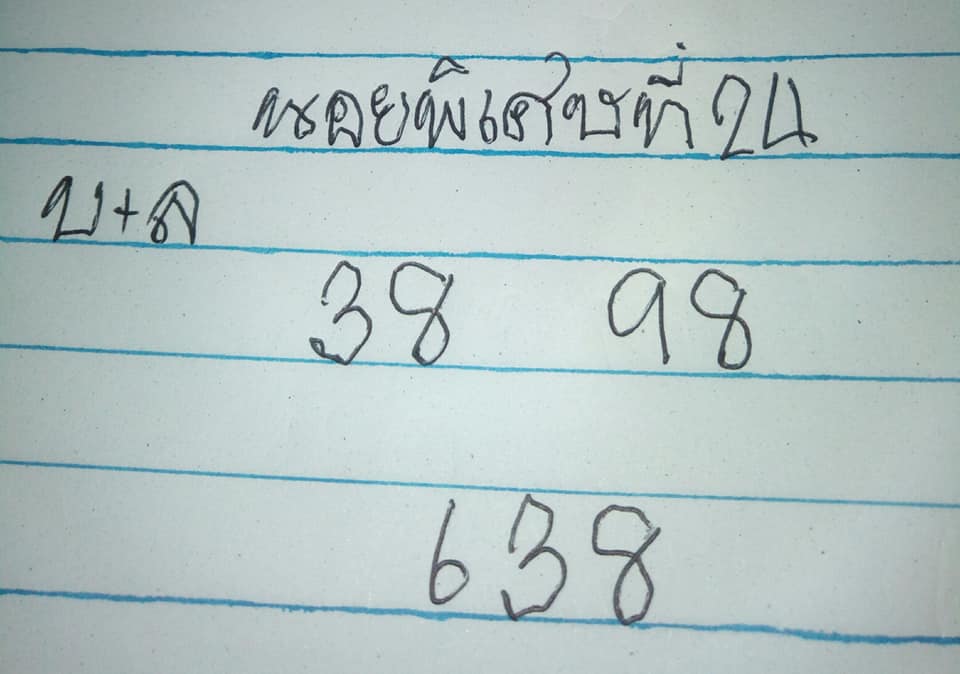 หอยพิเศษที่ 24
บ+ล
38 98
638